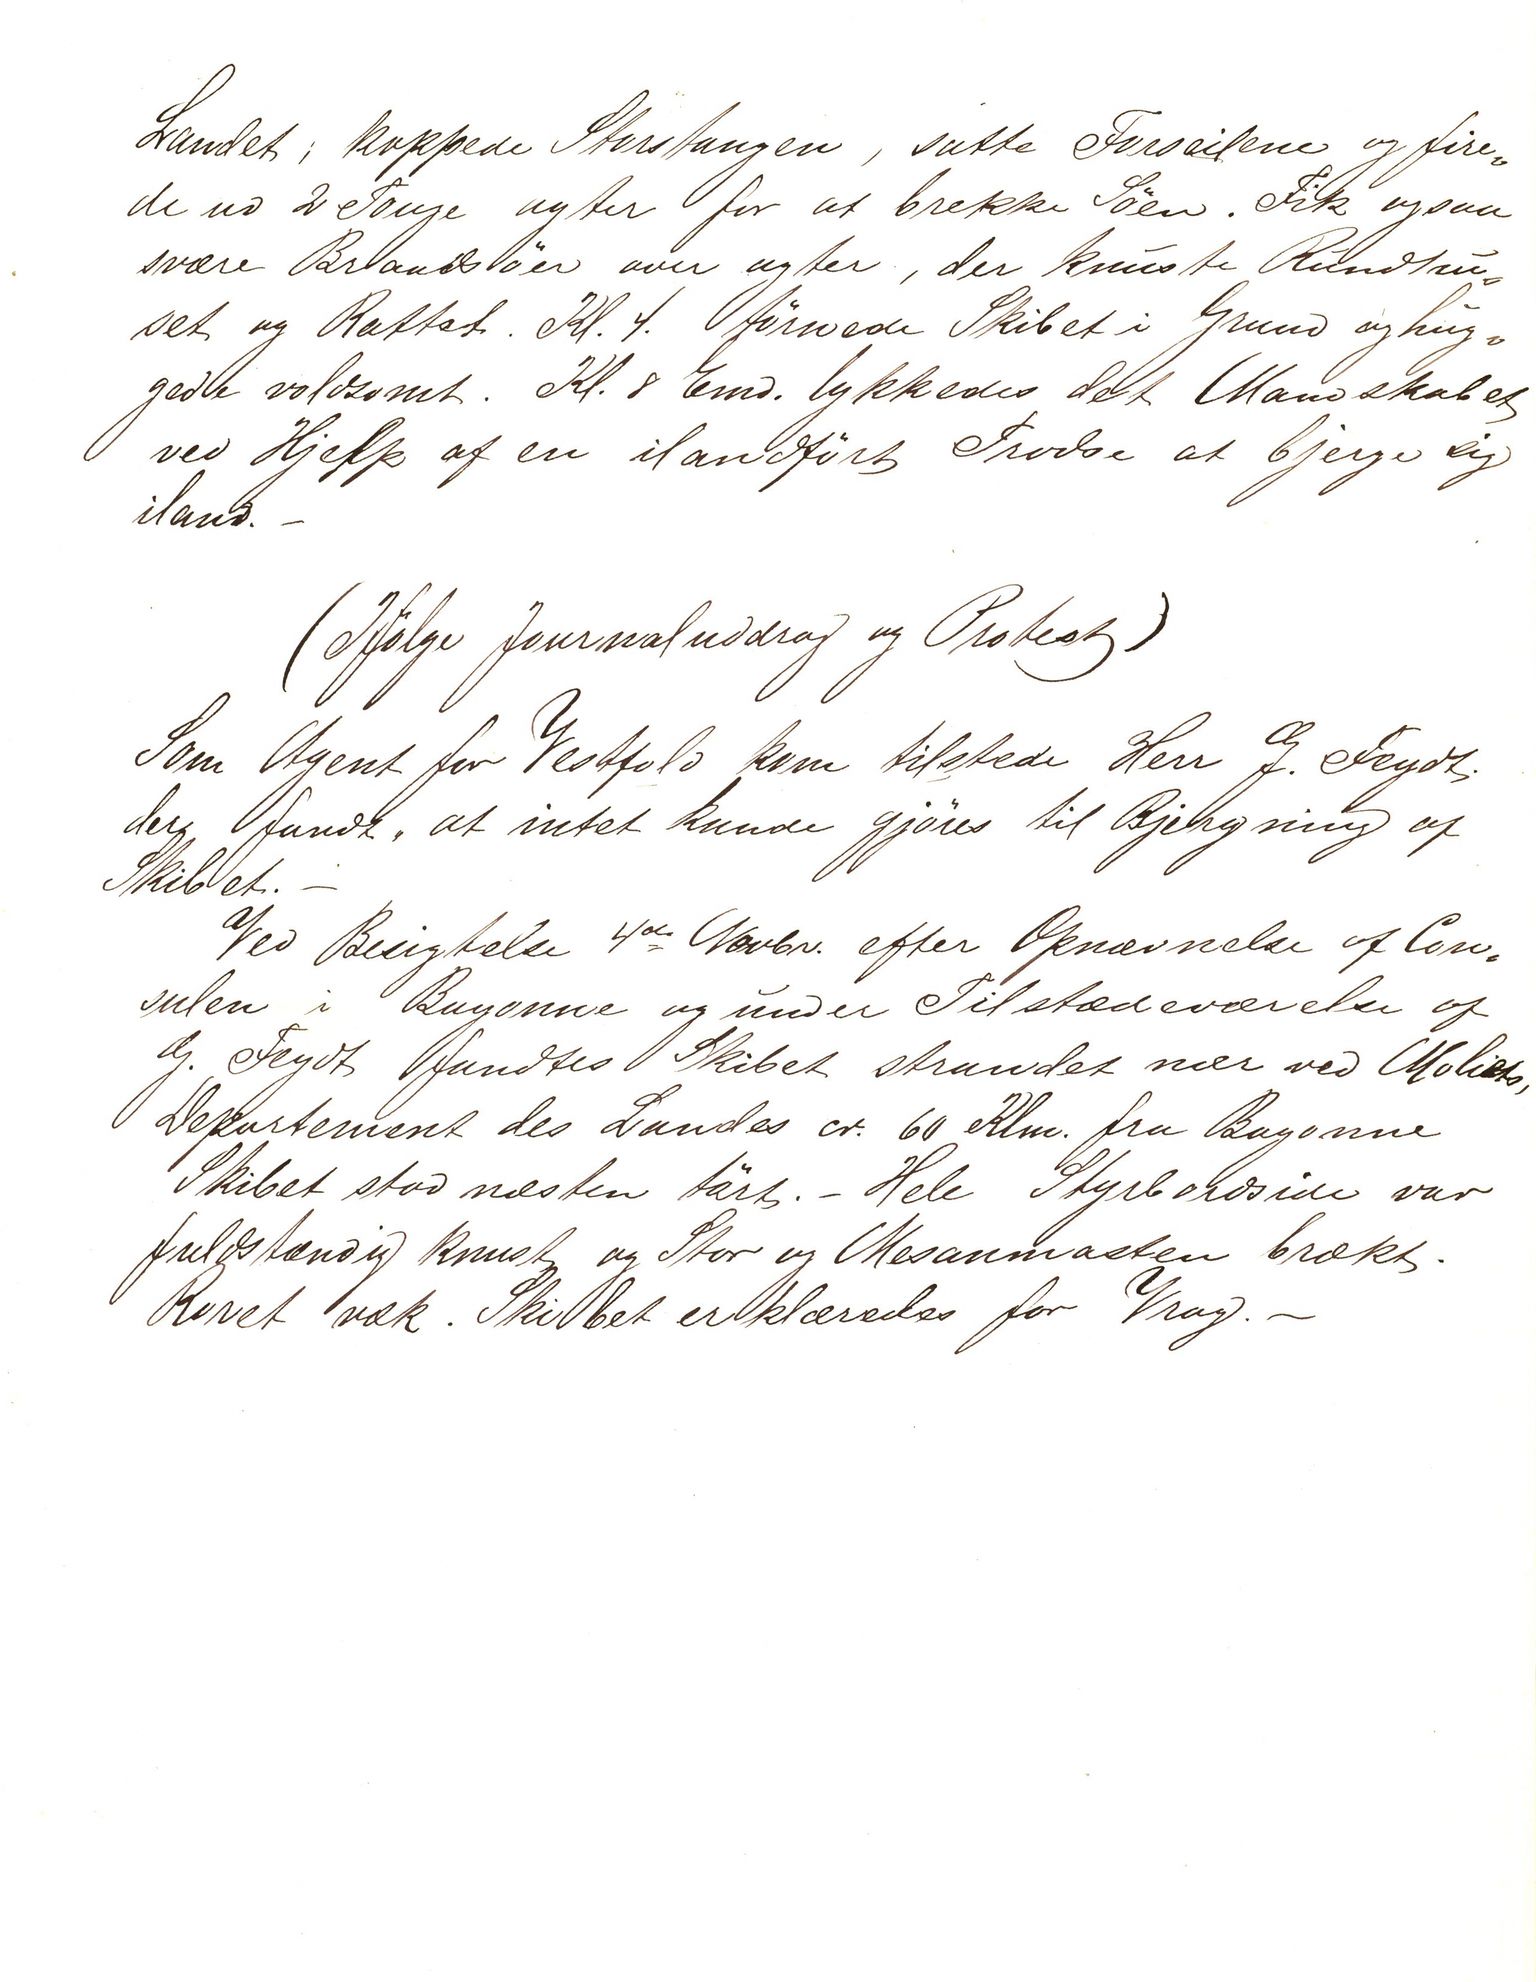 Landet; kappede Storstangen, satte Forseilene og fire-
de ud 2 Touge agter for at brekke Söen. Fik ogsaa
svære Braadsöer over agter, der knuste Rundhu-
set og Rattet. Kl. 4. törnede Skibet i Grund og hug-
gede voldsomt. Kl. 8 Emd. lykkedes det Mandskabet
ved Hjelp af en ilandført Trodse at bjerge sig
iland. -
(Ifölge Journaluddrag og Protest)
Som Agent for Vestfold kom tilstede Herr G. Feydt.
der fandt, at intet kunde gjöres til Bjergning af
Skibet. -
Ved Besigtelse 4de Novbr. efter Opnævnelse af Con-
sulen i Bayonne og under Tilstædeværelse af
G. Feydt fandtes Skibet strandet nær ved Moliets,
Departement des Landes cr. 60 Klm. fra Bayonne
Skibet stod næsten tört. - Hele Styrbordside var
fuldstændig knust og Stor og Mesanmasten brækt.
Roret væk. Skibet erklæredes for Vrag. -